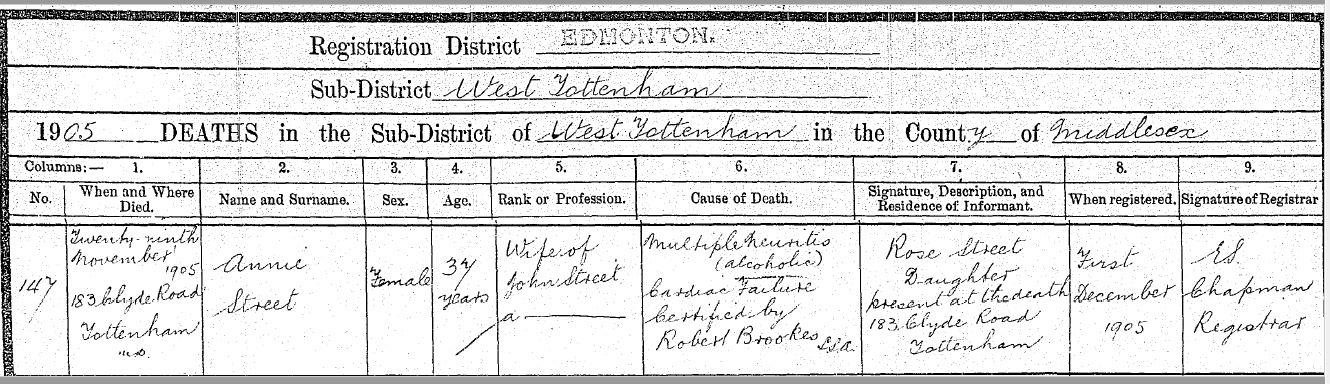 Registration District EDMONTON.
Sub-District West Tottenham
1905 DEATHS in the Sub-District of West Tottenham in the County of Middlesex
Columns:— 1. 2. 3. 4. 5. 6. 7. 8. 9.
No. When and Where Died. Name and Surname. Sex. Age. Rank or Profession. Cause of Death. Signature, Description, and Residence of Informant. When registered. Signature of Registrar
147
Twenty-ninth
November
1905
183 Clyde Road
Tottenham
Annie
Street
Female
37
years
Wife of
John Street
a
Multiple Neuritis
(alcoholic)
Cardiac Failure
Certified by
Robert Brookes
Rose Street
Daughter
present at the death
183, Clyde Road
Tottenham
First
December
1905
Chapman
Registrar